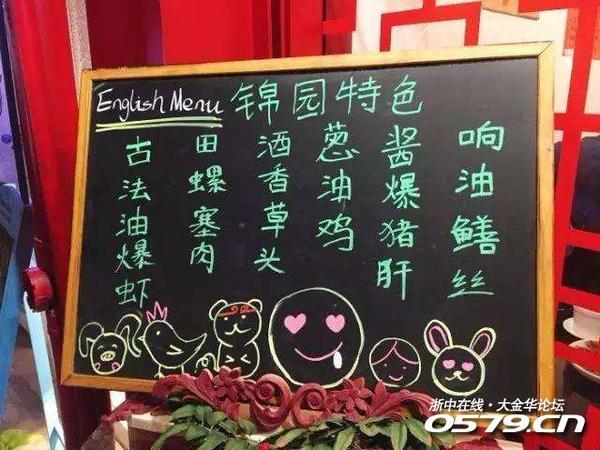 English Menu
锦园特色
响油鳝丝
酱爆猪肝
葱油鸡
酒香草头
田螺塞肉
古法油爆虾
浙中在线·大金华论坛
0579.CN